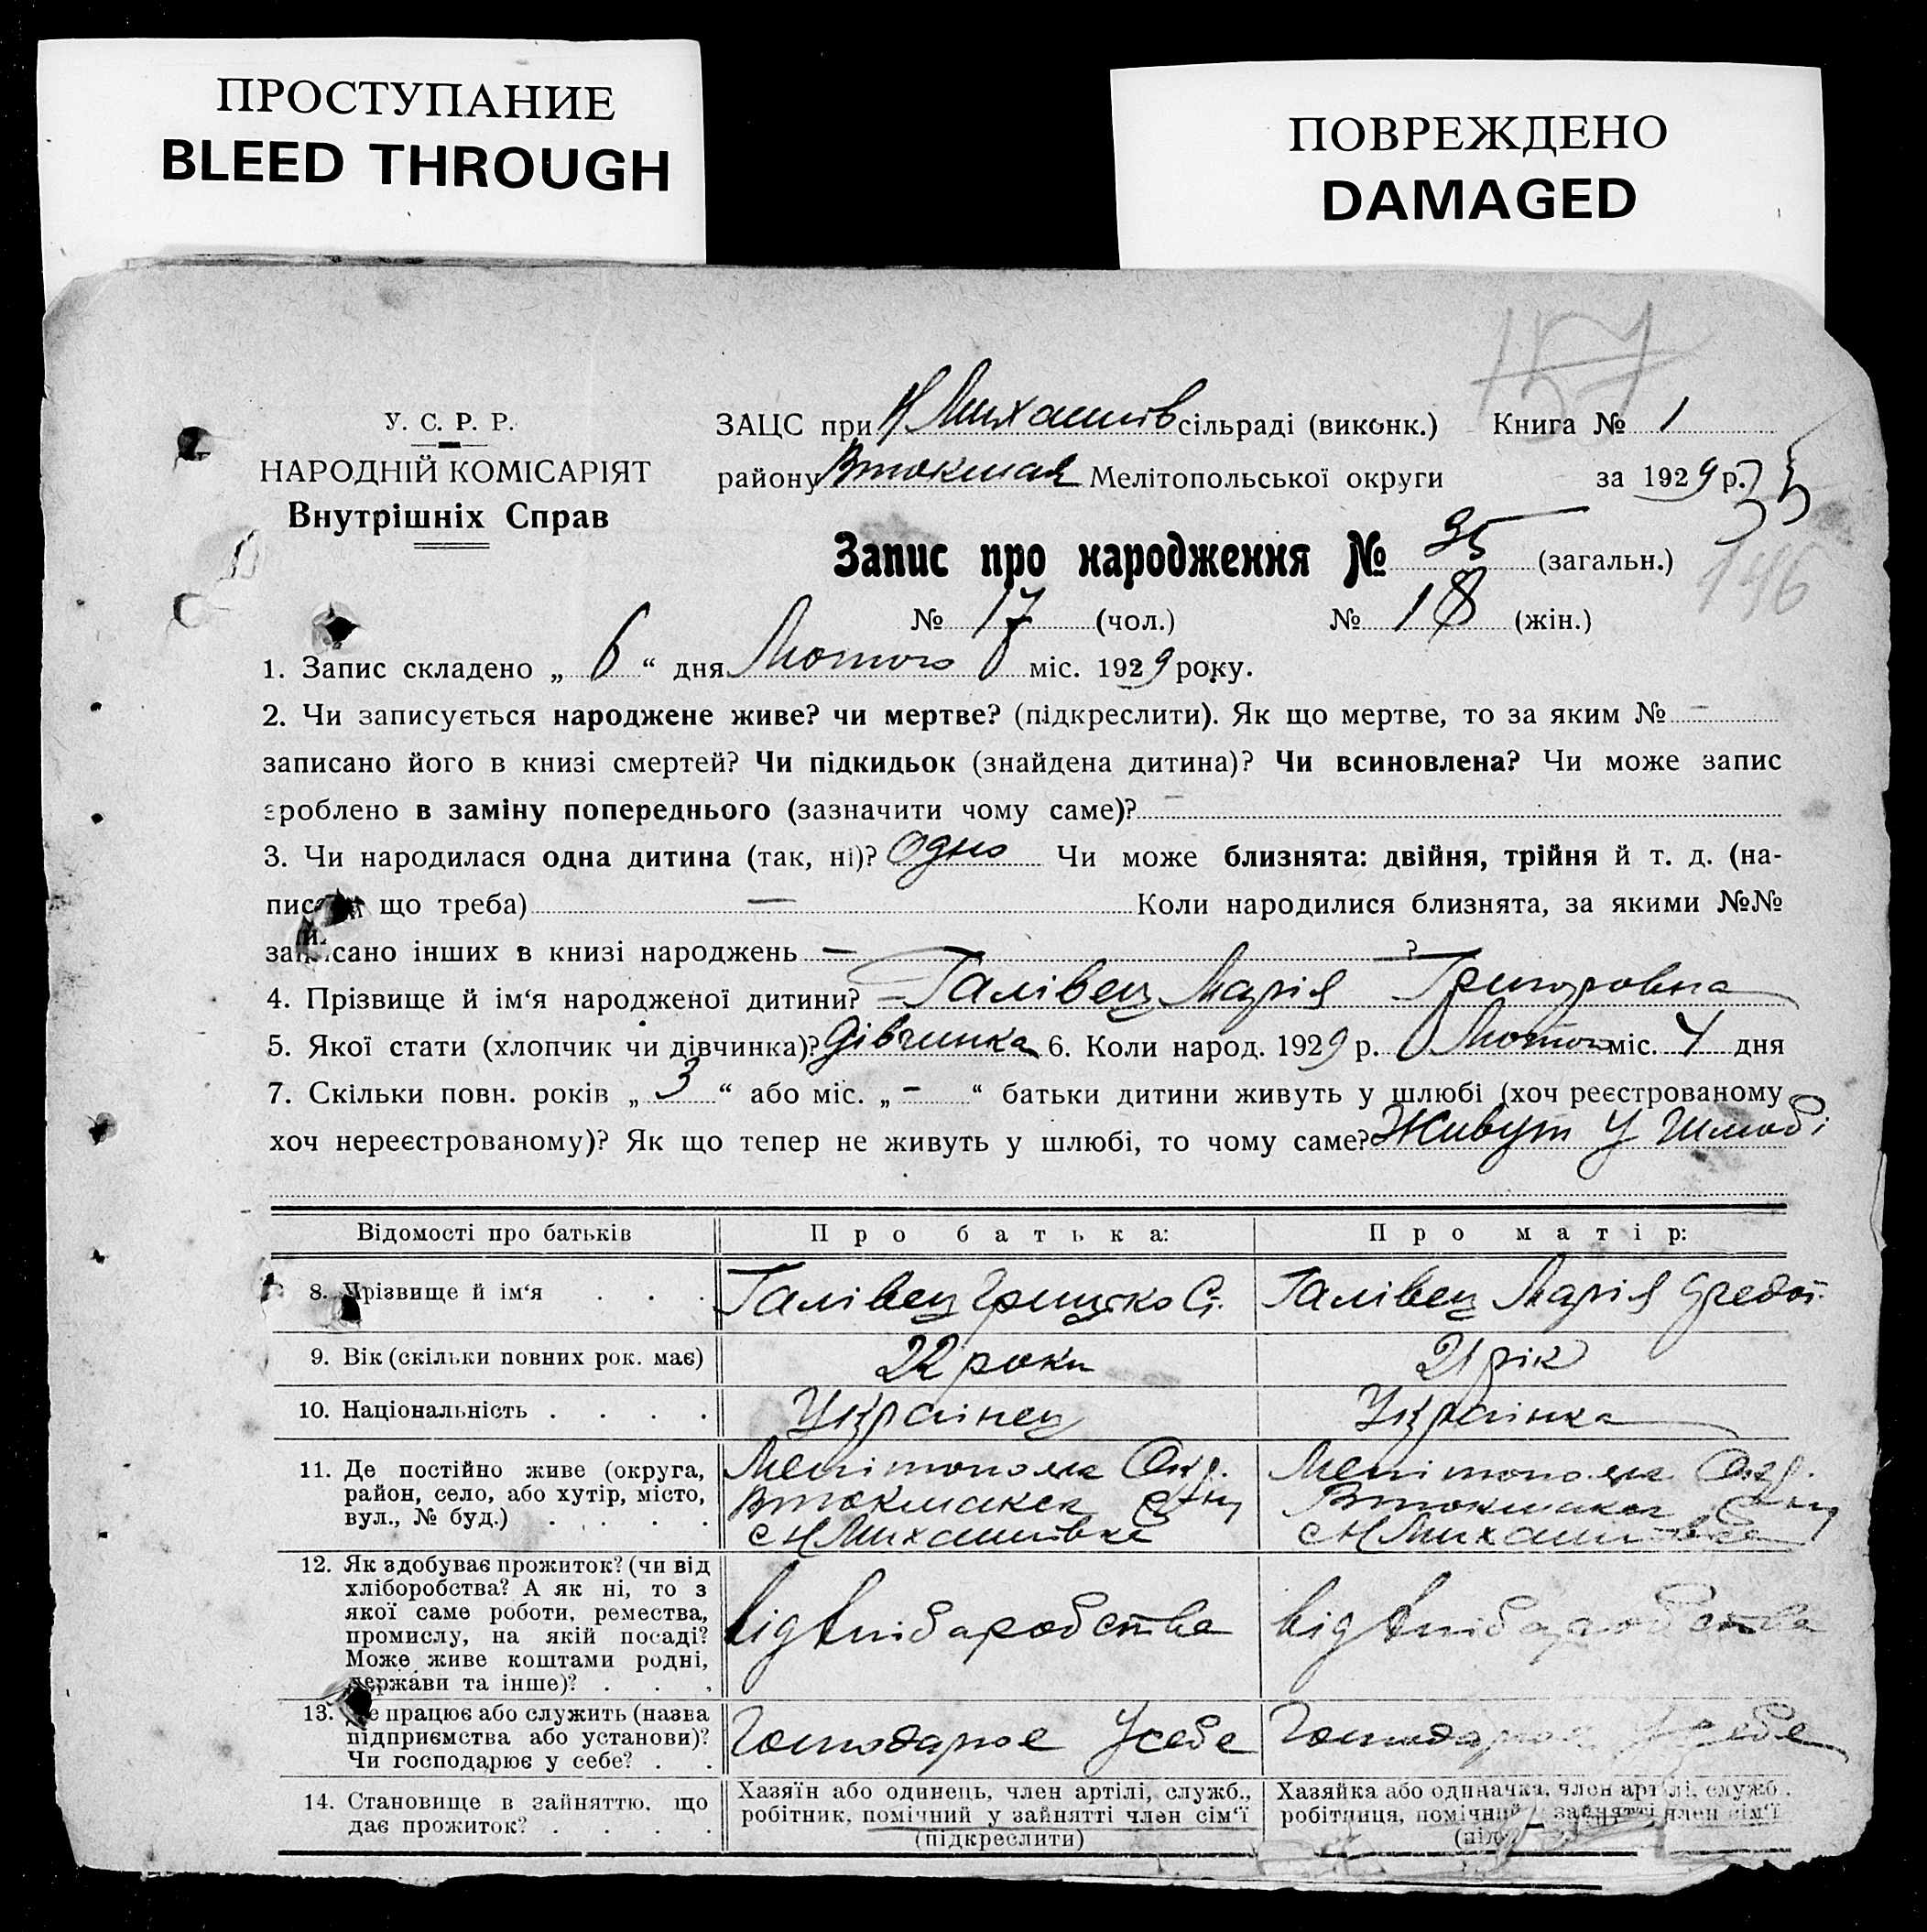 ПРОСТУПАНИЕ
BLEED THROUGH
ПОВРЕЖДЕНО
DAMAGED
157
У. С. Р. Р.
НАРОДНІЙ КОМІСАРІЯТ
Внутрішніх Справ
ЗАЦС при Н Михайлів сільраді (виконк.) Книга № 1
району Втокмак Мелітопольської округи за 1929 р.
146
Запис про народження № 35 (загальн.)
№ 17 (чол.) № 18 (жін.)
1. Запис складено „ 6 “ дня Лютого міс. 1929 року.
2. Чи записується народжене живе? чи мертве? (підкреслити). Як що мертве, то за яким № –
записано його в книзі смертей? Чи підкидьок (знайдена дитина)? Чи всиновлена? Чи може запис
зроблено в заміну попереднього (зазначити чому саме)? –
3. Чи народилася одна дитина (так, ні)? Одно Чи може близнята: двійня, трійня й т. д. (на-
писати що треба) — Коли народилися близнята, за якими №№
записано інших в книзі народжень — ?
4. Прізвище й ім‘я народженої дитини? Галівец Марія Григоровна
5. Якої стати (хлопчик чи дівчинка)? Дівчинка 6. Коли народ. 1929 р. Лютого міс. 4 дня
7. Скільки повн. років „ 3 “ або міс. „ – “ батьки дитини живуть у шлюбі (хоч реєстрованому
хоч нереєстрованому)? Як що тепер не живуть у шлюбі, то чому саме? Живут У Шлюбі
Відомості про батьків Про батька: Про матір:
8. Прізвище й ім‘я . . . Галівец Грицько С. Галівец Марія
9. Вік (скільки повних рок. має) 22 роки 21 рік
10. Національність . . . . Українец Українка
11. Де постійно живе (округа,
район, село, або хутір, місто,
вул., № буд.) . . . .
Мелітополск Окр.
Втокмакск
с Н Михайлівка
Мелітополск Окр.
Втокмакск
с Н Михайлівка
12. Як здобуває прожиток? (чи від
хліборобства? А як ні, то з
якої саме роботи, ремества,
промислу, на якій посаді?
Може живе коштами родні,
держави та інше)? . . .
від хлібаробства
від хлібаробства
13. Де працює або служить (назва
підприємства або установи)?
Чи господарює у себе? . .
Господарює Усебе
Господарює Усебе
14. Становище в зайняттю, що
дає прожиток? . . . .
Хазяїн або одинець, член артілі, служб.,
робітник, помічний у зайнятті член сім‘ї
(підкреслити)
Хазяйка або одиначка, член артілі, служб.,
робітниця, помічний зайнятті член сім‘ї